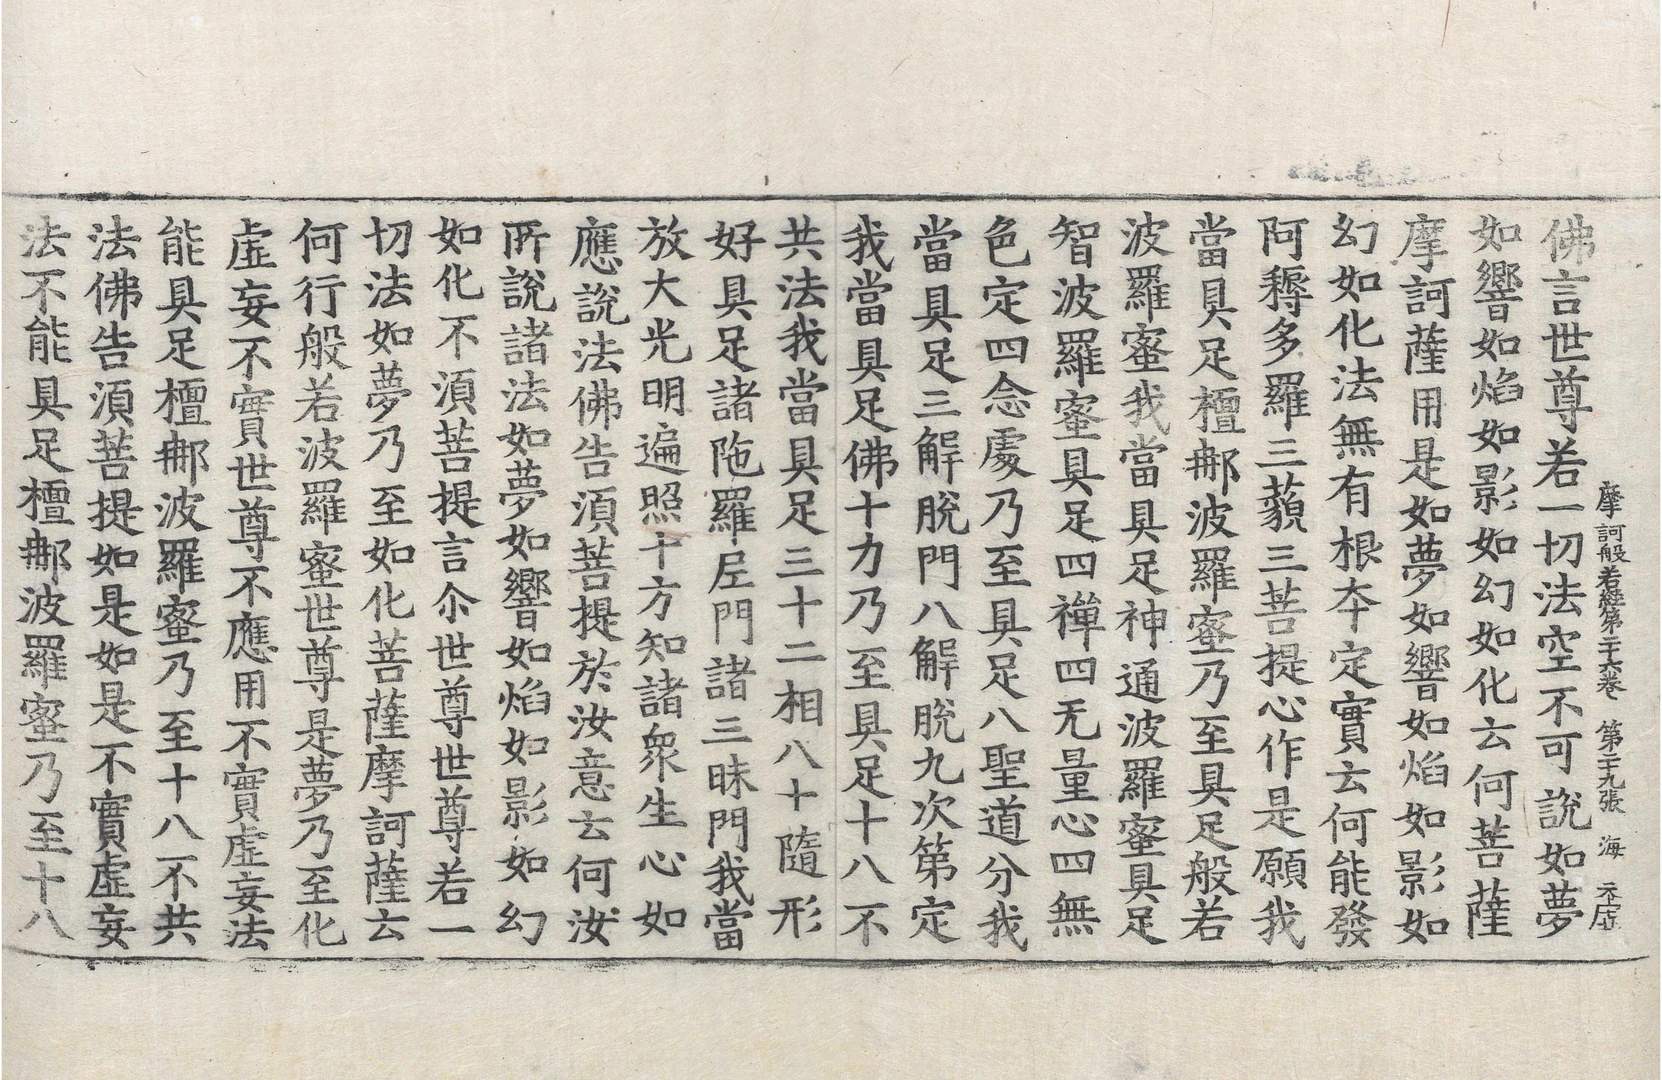 摩訶般若經第二十六卷 第二十九張 海
佛言世尊若一切法空不可說如夢
如響如焰如影如幻如化云何菩薩
摩訶薩用是如夢如響如焰如影如
幻如化法無有根本定實云何能發
阿耨多羅三藐三菩提心作是願我
當具足檀那波羅蜜乃至具足般若
波羅蜜我當具足神通波羅蜜具足
智波羅蜜具足四禪四无量心四無
色定四念處乃至具足八聖道分我
當具足三解脫門八解脫九次第定
我當具足佛十力乃至具足十八不
共法我當具足三十二相八十隨形
好具足諸陁羅尼門諸三昧門我當
放大光明遍照十方知諸衆生心如
應說法佛告須菩提於汝意云何汝
所說諸法如夢如響如焰如影如幻
如化不須菩提言尒世尊世尊若一
切法如夢乃至如化菩薩摩訶薩云
何行般若波羅蜜世尊是夢乃至化
虛妄不實世尊不應用不實虛妄法
能具足檀那波羅蜜乃至十八不共
法佛告須菩提如是如是不實虛妄
法不能具足檀那波羅蜜乃至十八